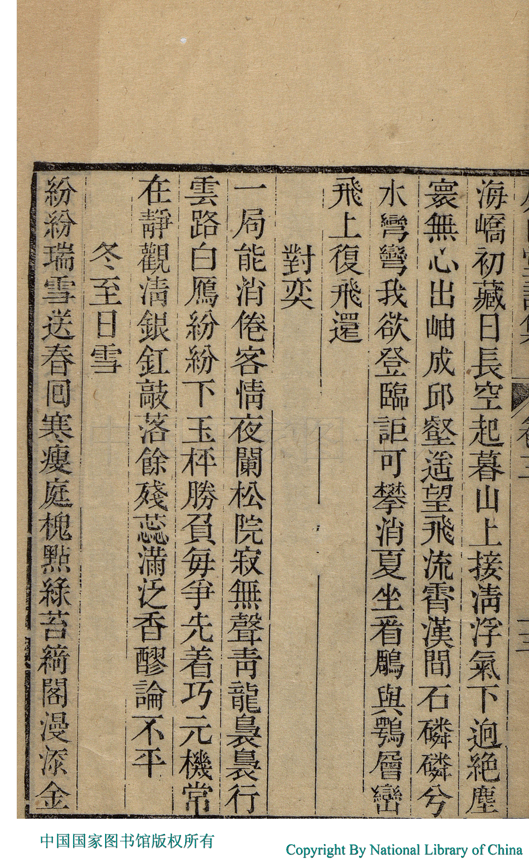 海嶠初藏日長空起暮山上接淸浮氣下迥絕塵
寰無心出岫成邱壑遥望飛流霄漢間石磷磷兮
水彎彎我欲登臨詎可攀消夏坐看鵰與鶚層巒
飛上復飛還
對奕
一局能消倦客情夜闌松院寂無聲靑龍裊裊行
雲路白鴈紛紛下玉枰勝負毎爭先着巧元機常
在靜觀淸銀釭敲落餘殘蕊滿泛香醪論不平
冬至日雪
紛紛瑞雪送春回寒瘦庭槐點綠苔綺閣漫添金
中国国家图书馆版权所有
Copyright By National Library of China